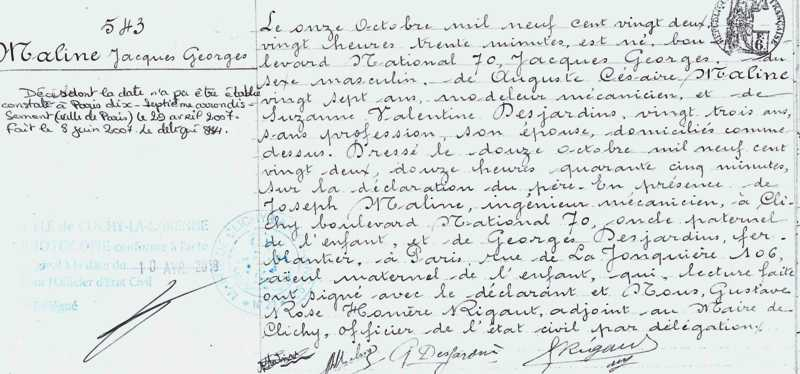 543
Maline Jacques Georges
Décès dont la date n'a pu être établie
constaté à Paris dix-septième arrondis-
sement (ville de Paris) le 20 avril 2007.
Fait le 8 juin 2007. Le délégué
VILLE de CLICHY-LA-GARENNE
PHOTOCOPIE conforme à l'acte
civil à la date du 10 AVR. 2018
Pour l'Officier d'Etat Civil
délégué
Le onze Octobre mil neuf cent vingt deux,
vingt heures trente minutes, est né, bou-
levard National 70, Jacques Georges, du
sexe masculin, de Auguste Césaire Maline,
vingt sept ans, modeleur mécanicien, et de
Suzanne Valentine Desjardins, vingt trois ans,
sans profession, son épouse, domiciliés comme
dessus. Dressé le douze Octobre mil neuf cent
vingt deux, douze heures quarante cinq minutes,
sur la déclaration du père. En présence de
Joseph Maline, ingénieur mécanicien, à Cli-
chy boulevard National 70, oncle paternel
de l'enfant, et de Georges Desjardins, fer-
blantier, à Paris, rue de La Jonquière 106,
aïeul maternel de l'enfant, qui, lecture faite
ont signé avec le déclarant et Nous, Gustave
Rose Homère Rigaut, adjoint au Maire de
Clichy, officier de l'état civil par délégation.
G Desjardins Rigaut